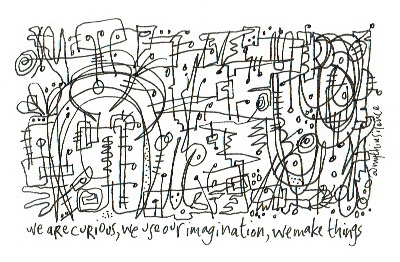 we are curious, we use our imagination, we make things